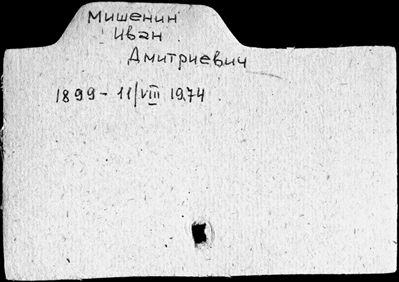 Мишенин
Иван
Дмитриевич
1899 - 11/VIII 1974